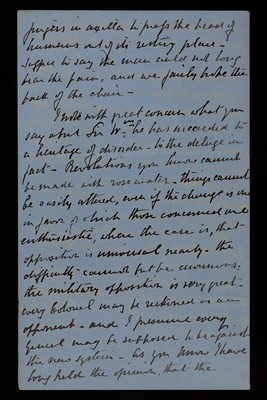 fingers in axilla to press the head of
humerus out of its resting place -
Suffice to say the man could not long
bear the pain, and we fairly broke the
back of the chair -
I note with great concern what you
say about Sir Wm he has succeeded to
a heritage of disorder - to the deluge in
fact - Revolutions you know cannot
be made with rose water - things cannot
be easily altered, even if the change is one
in favor of which those concerned are
enthusiastic, where the case is, that
opposition is universal nearly - the
difficulty cannot but be enormous;
the military opposition is very great -
every Colonel may be reckoned as an
opponent - and I presume every
general may be supposed to be against
the new system - As you know I have
long held the opinion that the